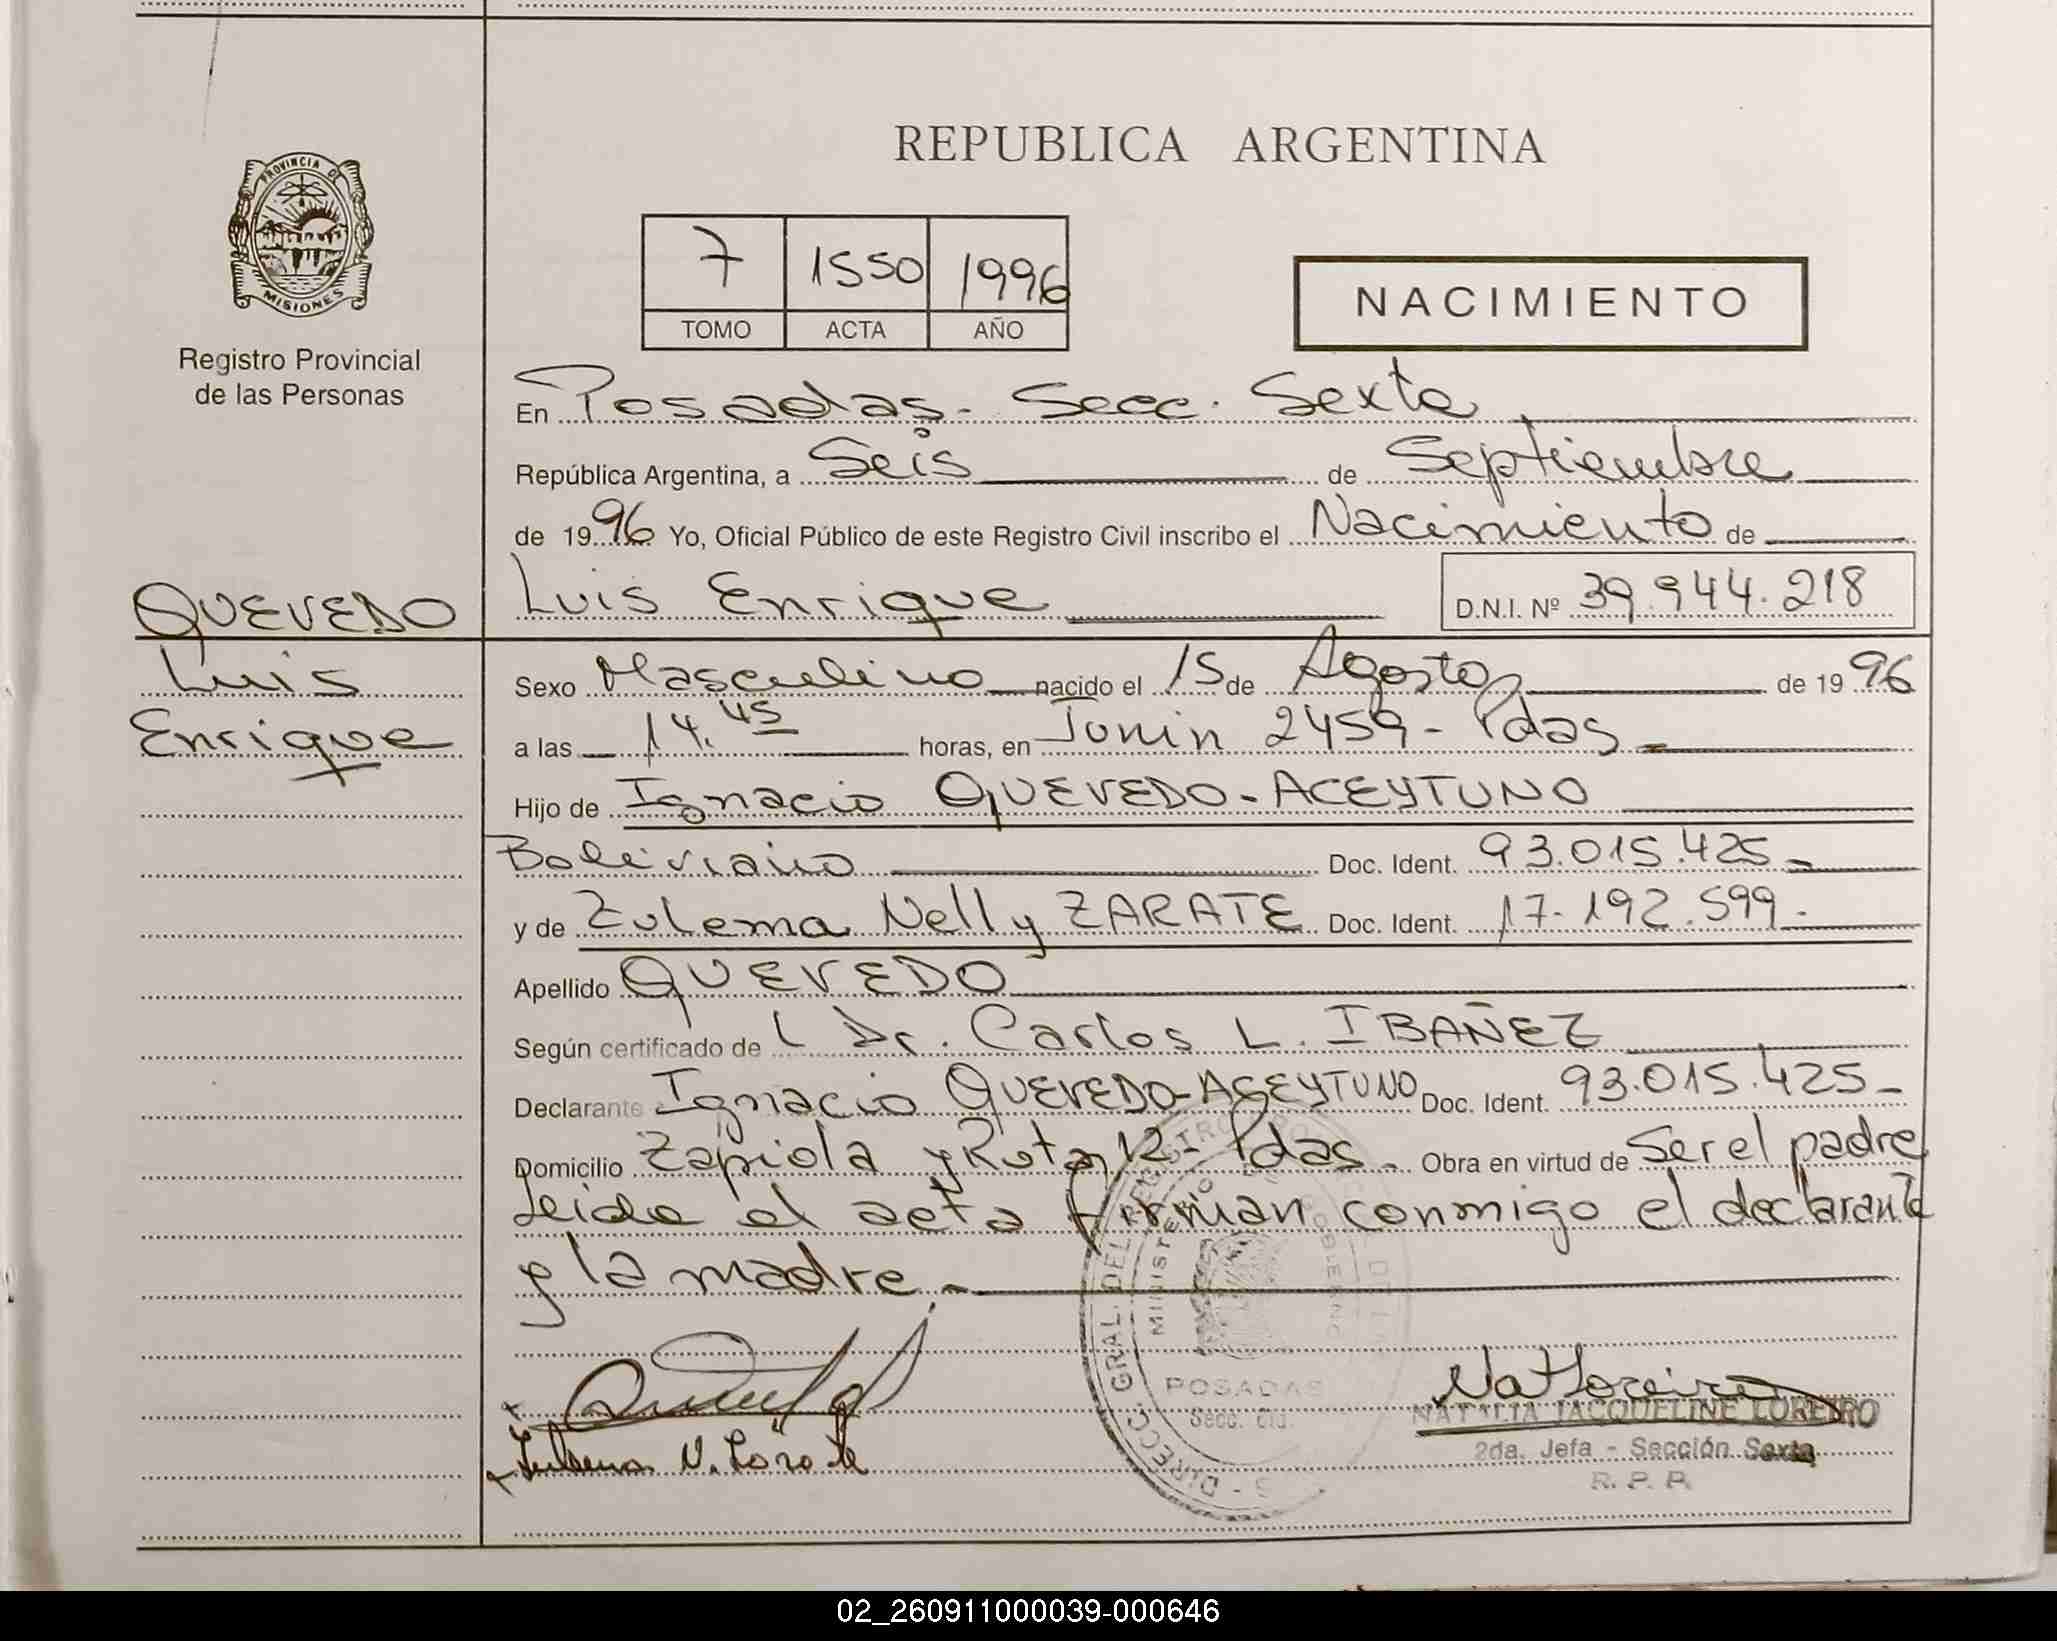 REPUBLICA ARGENTINA
PROVINCIA DE
MISIONES
Registro Provincial
de las Personas
7 1550 1996
TOMO ACTA AÑO
NACIMIENTO
En Posadas - Secc. Sexta
República Argentina, a Seis de Septiembre
de 1996 Yo, Oficial Público de este Registro Civil inscribo el Nacimiento de
QUEVEDO
Luis
Enrique
Luis Enrique D.N.I. Nº 39.944.218
Sexo Masculino nacido el 15 de Agosto de 1996
a las 14.45 horas, en Junin 2459 - Pdas -
Hijo de Ignacio QUEVEDO - ACEYTUNO
Boliviano Doc. Ident. 93.015.425 -
y de Zulema Nelly ZARATE Doc. Ident. 17.192.599 -
Apellido QUEVEDO
Según certificado de l Dr. Carlos L. IBAÑEZ
Declarante Ignacio QUEVEDO-ACEYTUNO Doc. Ident. 93.015.425 -
Domicilio Zapiola y Ruta 12 - Pdas - Obra en virtud de Ser el padre
Leida el acta firman conmigo el declarante
y la madre. -
Zulema N. Zárate
DIRECC. GRAL. DEL REGISTRO
MINISTERIO GOBIERNO
POSADAS
Secc.
NATALIA JACQUELINE LOREIRO
2da. Jefa - Sección Sexta
R. P. P.
02_260911000039-000646